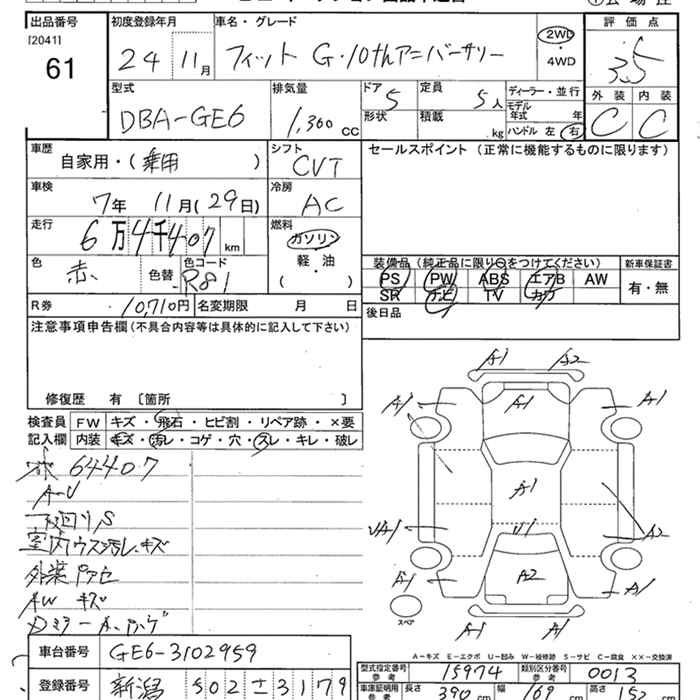 出品番号 初度登録年月 車名・グレード 評価点
[2041]
61 24 11月 フィット G・10thアニバーサリー 2WD・4WD 3.5
型式 排気量 ドア 定員 ディーラー・並行 外装 内装
DBA-GE6 1,300cc 5 5人 モデル年式 年 C C
形状 積載 kg ハンドル 左 右
車歴 シフト セールスポイント(正常に機能するものに限ります)
自家用・(乗用) CVT
車検 冷房
7年 11月(29日) AC
走行 燃料
6万4千407km ガソリン
色 色コード 軽・油 装備品(純正品に限り○をつけてください) 新車保証書
赤 色替 R81 ( ) PS PW ABS エアB AW 有・無
R券 10,710円 名変期限 月 日 SR ナビ TV カワ
注意事項申告欄(不具合内容等は具体的に記入して下さい) 後日品
修復歴 有 [箇所 ]
検査員 FW キズ・飛石・ヒビ割・リペア跡・×要
記入欄 内装 キズ・汚レ・コゲ・穴・スレ・キレ・破レ
64407
A-U
下回りS
室内ウス汚レ、キズ
AW キズ
A1 A2
A1 A1 A1
A1
A1 U1 A2
A1 A2 A1
スペア
A1 A1
A-キズ E-エクボ U-凹み W-補修跡 S-サビ C-腐食 ××-交換済
車台番号 GE6-3102959
型式指定番号 参考 15974 類別区分番号 参考 0013
登録番号 新潟 502 さ 3179
車庫証明用 参考 長さ 390cm 幅 169cm 高さ 152cm